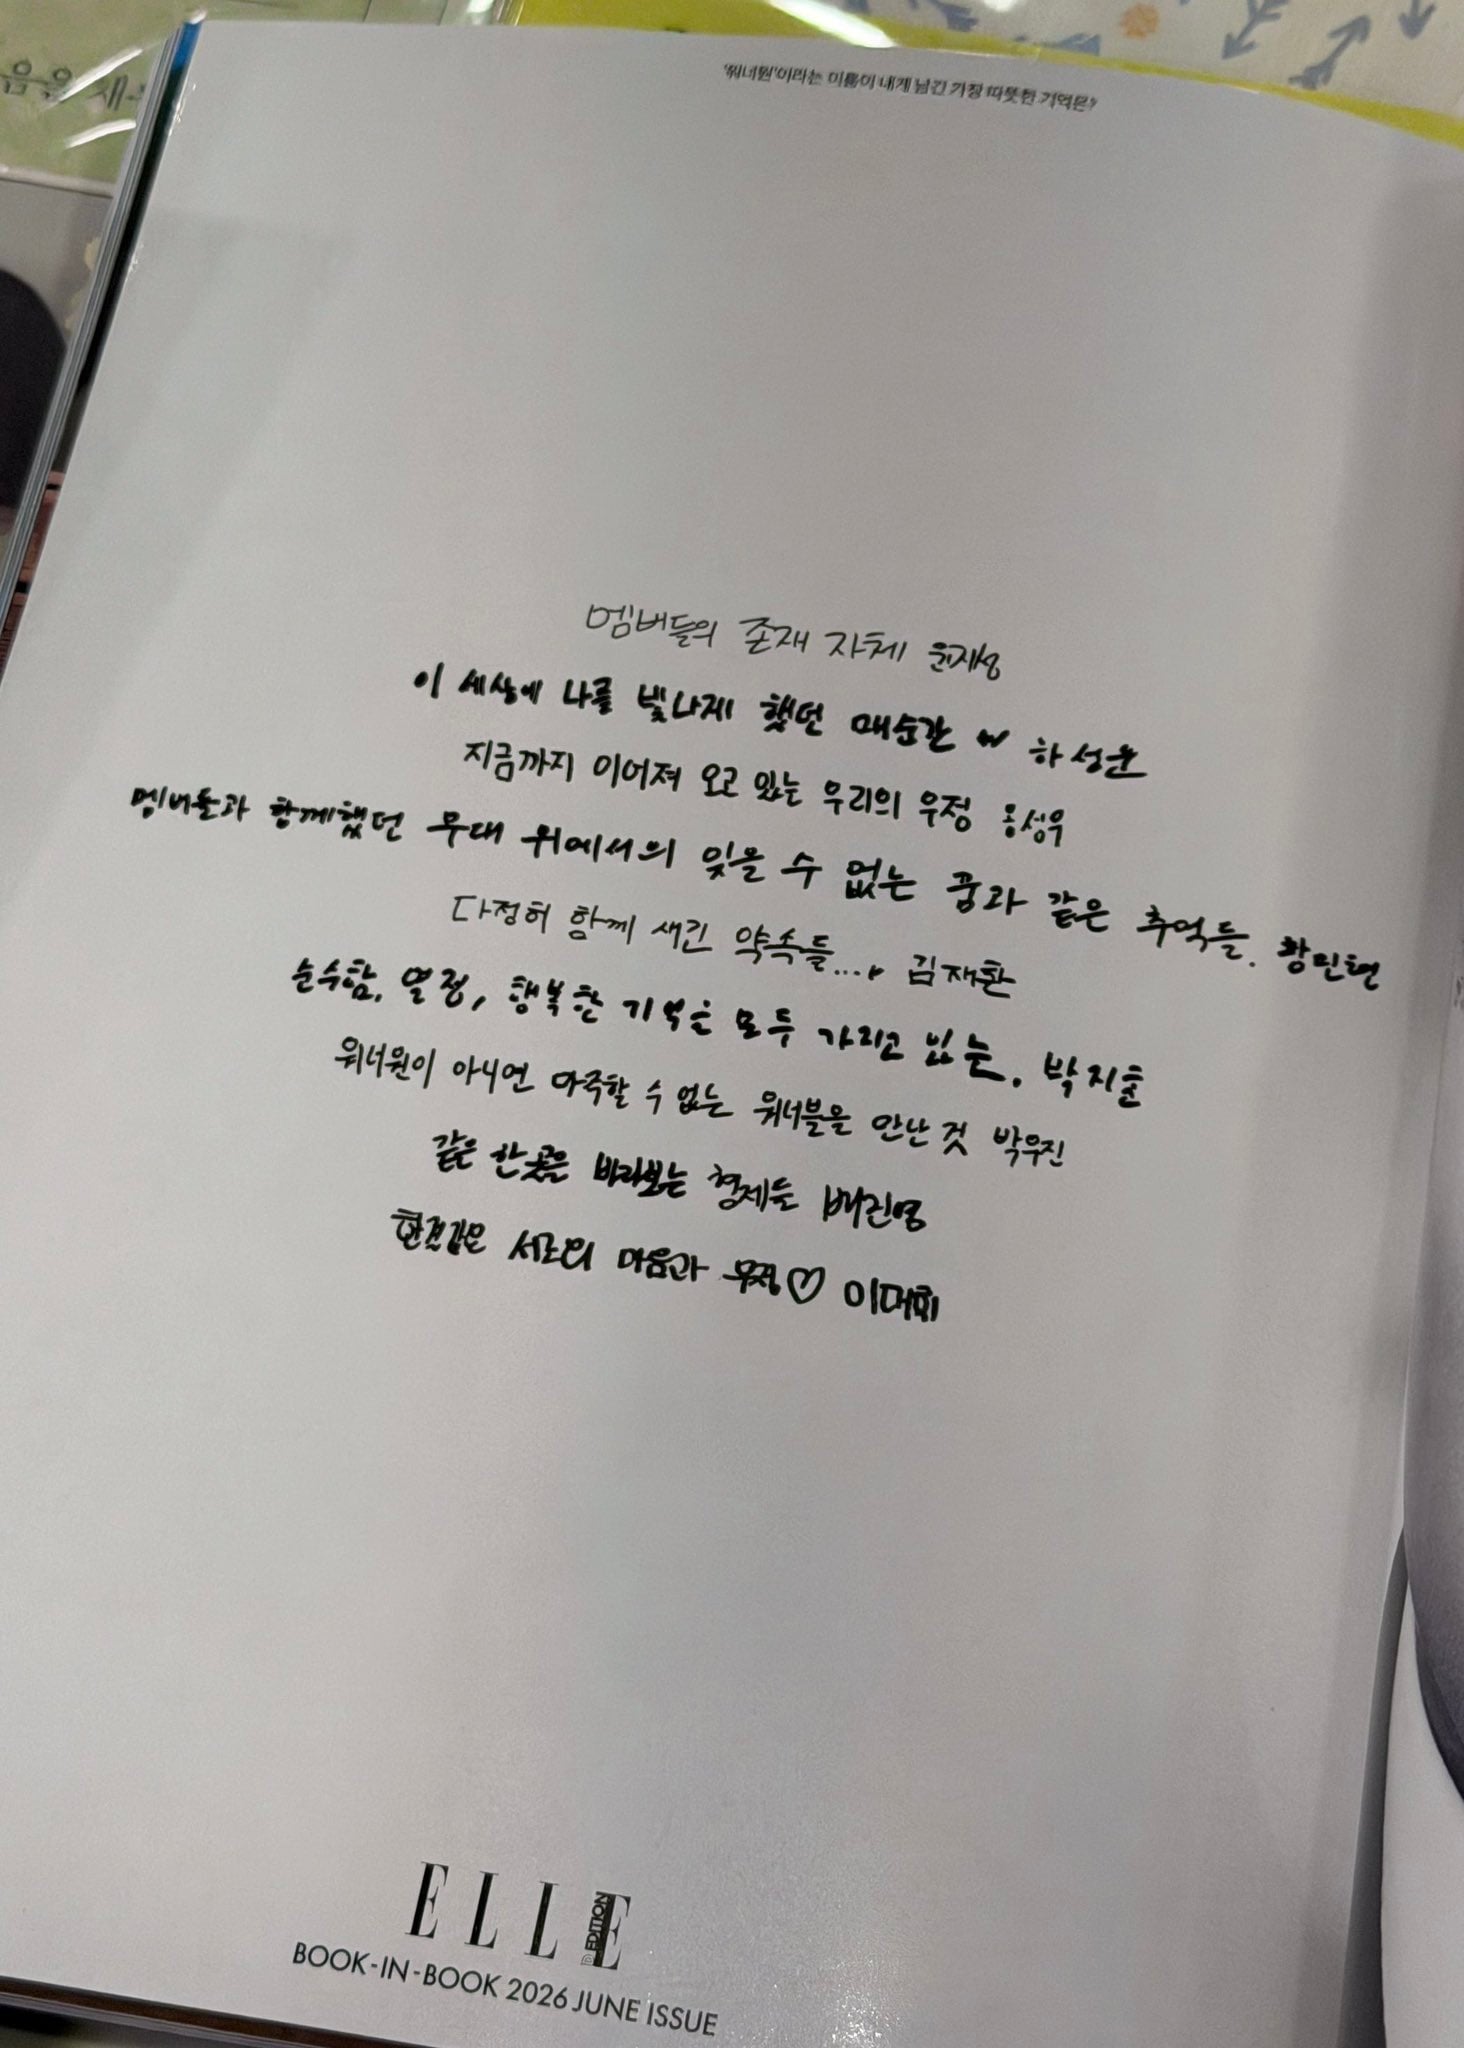 '워너원'이라는 이름이 내게 남긴 가장 따뜻한 기억은?
멤버들의 존재 자체 윤지성
이 세상에 나를 빛나게 했던 매순간 하성운
지금까지 이어져 오고 있는 우리의 우정 옹성우
멤버들과 함께했던 무대 위에서의 잊을 수 없는 꿈과 같은 추억들. 황민현
다정히 함께 새긴 약속들..., 김재환
순수함, 열정, 행복한 기억을 모두 가리고 있는. 박지훈
워너원이 아니면 마주할 수 없는 워너블을 만난 것 박우진
같은 한곳을 바라보는 형제들 배진영
한결같은 서로의 마음과 우정♡ 이대휘
ELLE
D EDITION
BOOK-IN-BOOK 2026 JUNE ISSUE